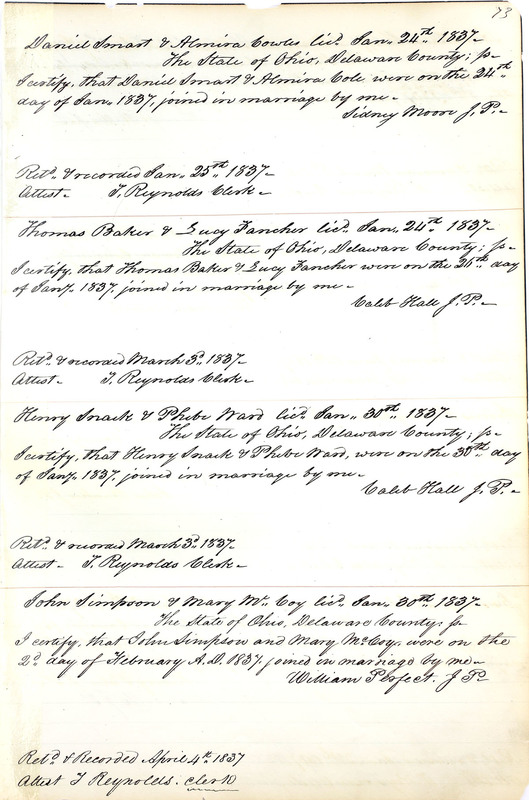 73
Daniel Smart & Almira Cowles licd. Jan. 24th. 1837-
The State of Ohio, Delaware County; ss-
I certify, that Daniel Smart & Almira Cole were on the 24th
day of Jan. 1837, joined in marriage by me-
Sidney Moore J.P.-
Retd. & recorded Jan. 25th 1837-
Attest- T. Reynolds Clerk-
Thomas Baker & Lucy Fancher licd. Jan. 24th. 1837-
The State of Ohio, Delaware County; ss-
I certify, that Thomas Baker & Lucy Fancher were on the 26th day
of Jany. 1837, joined in marriage by me-
Caleb Hall J.P.-
Retd. & recorded March 3d. 1837-
Attest- T. Reynolds Clerk-
Henry Snack & Phebe Ward licd. Jan. 30th. 1837-
The State of Ohio, Delaware County; ss-
I certify, that Henry Snack & Phebe Ward, were on the 30th day
of Jany. 1837, joined in marriage by me-
Caleb Hall J.P.-
Retd. & recorded March 3d. 1837-
Attest- T. Reynolds Clerk-
John Simpson & Mary Mc. Coy licd. Jan. 30th. 1837-
The State of Ohio, Delaware County; ss-
I certify, that John Simpson and Mary McCoy, were on the
2d. day of February A.D. 1837, joined in marriage by me-
William Perfect. J P-
Retd. & Recorded April 4th. 1837
Attest T Reynolds. clerk